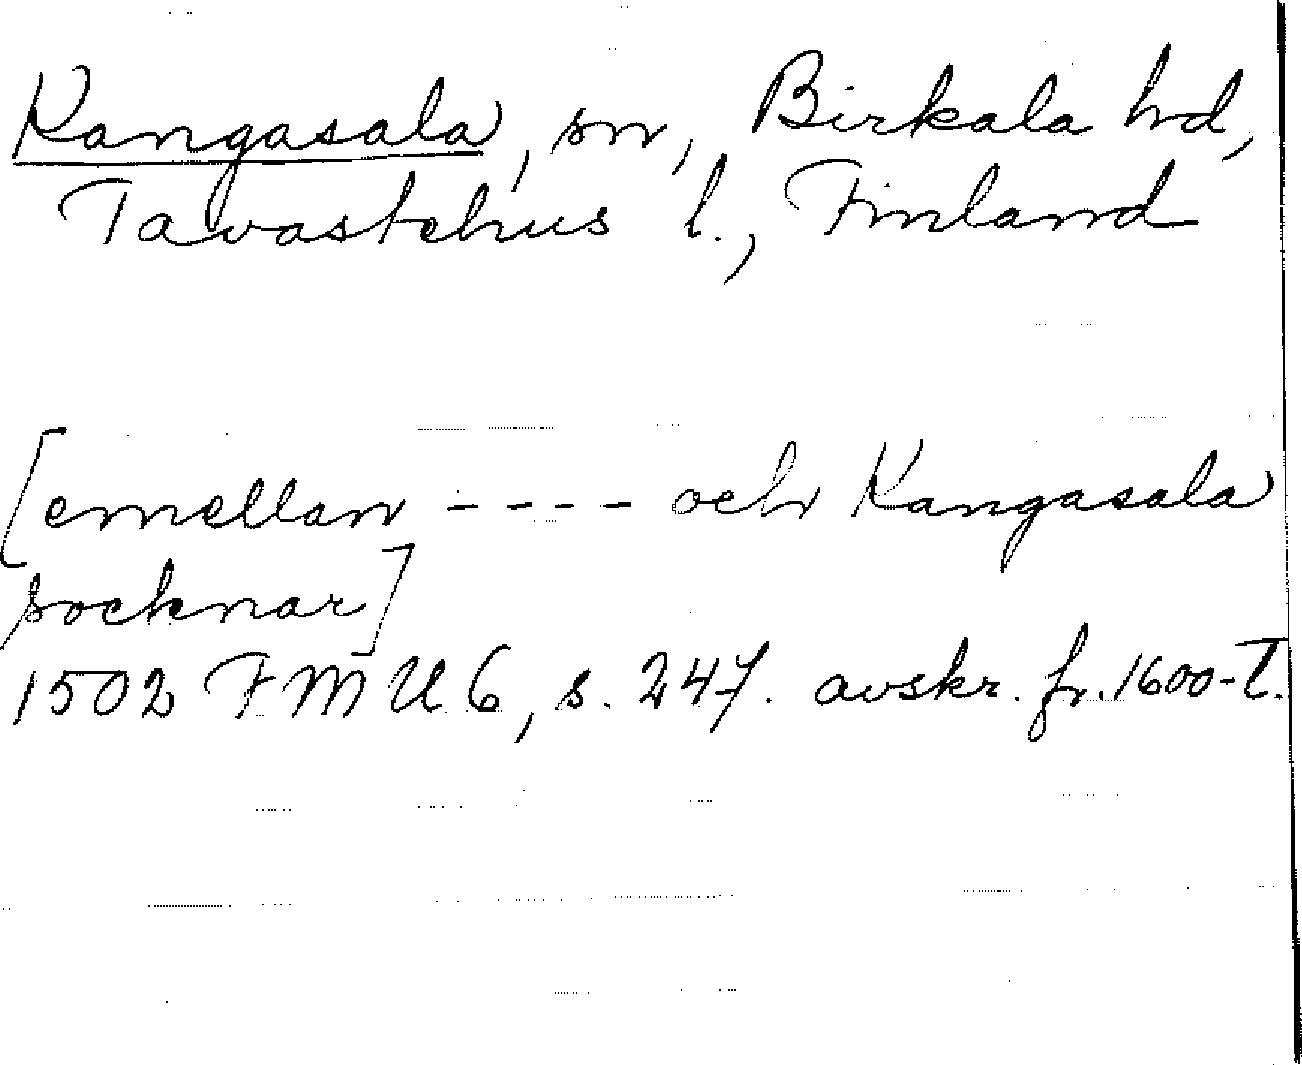 Kangasala, sn, Birkala hd,
Tavastehus l., Finland
[emellan - - - - och Kangasala
socknar]
1502 FMU 6, s. 247. avskr. fr. 1600-T.